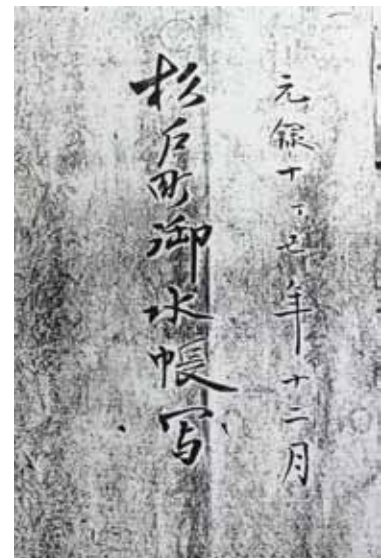 元録十丁丑年十二月
杉戸町御水帳写